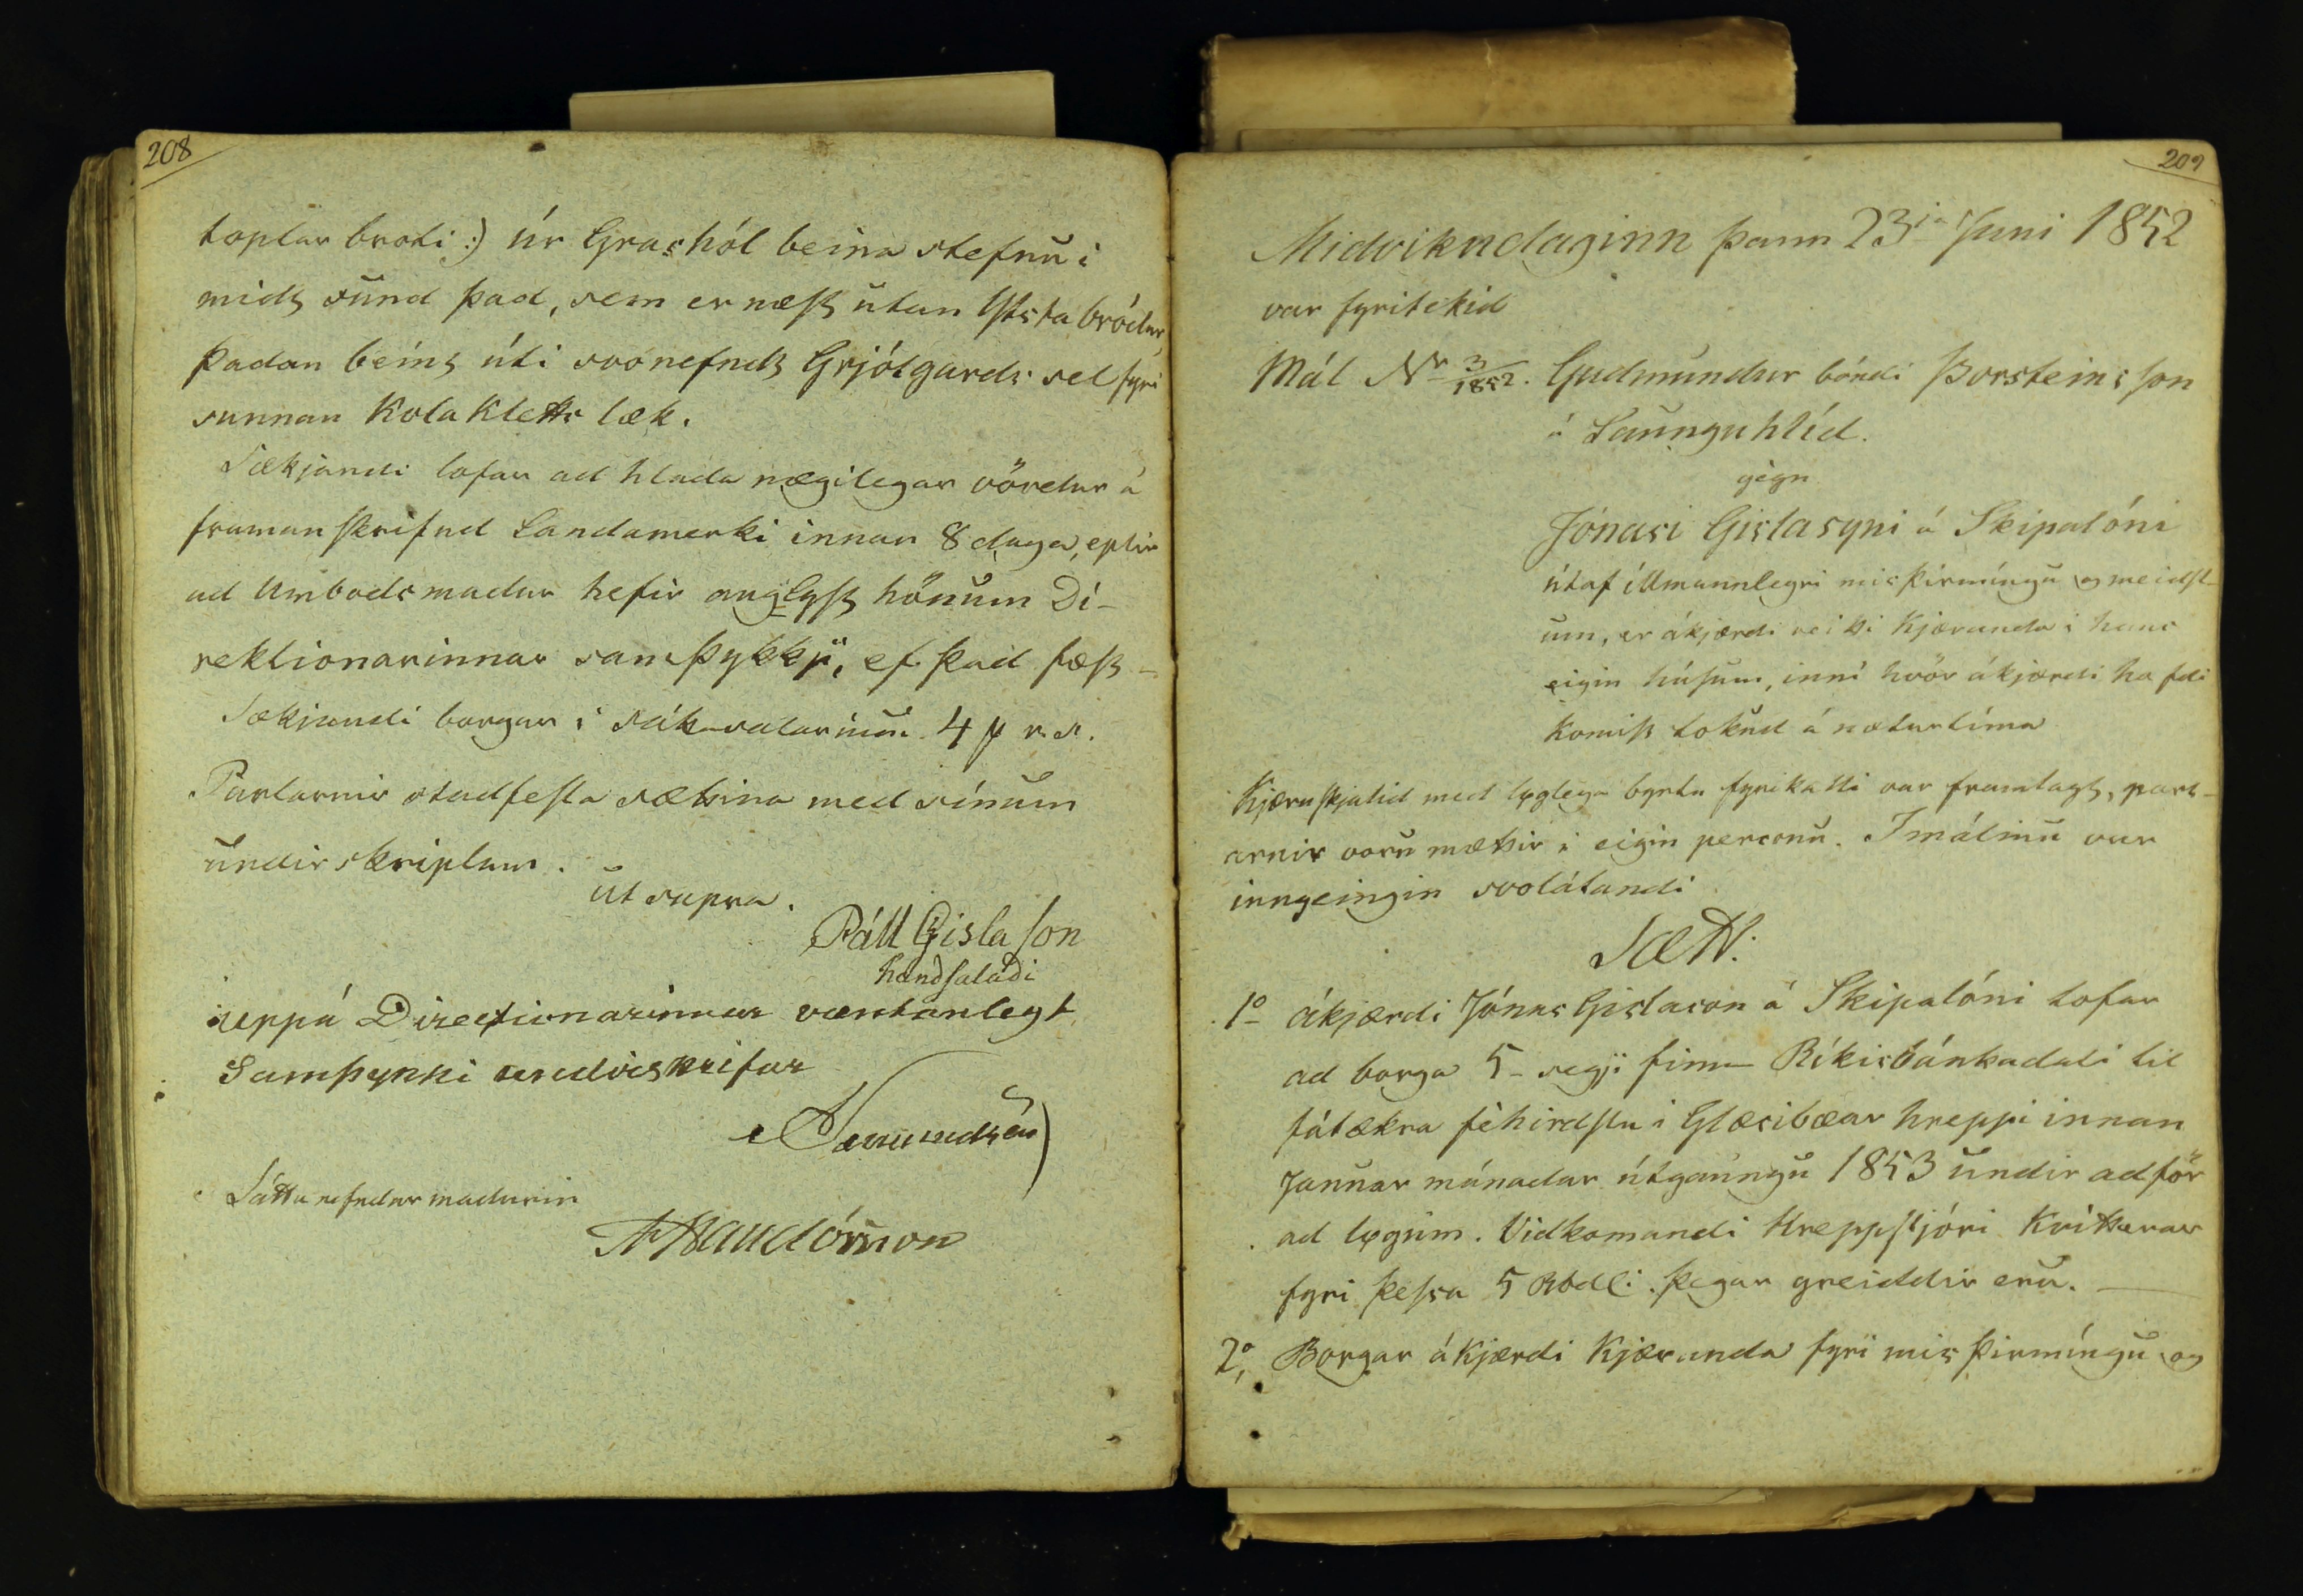 208
toptar broti :) úr Grashól beina stefnu í
midt sund þad, sem er næst utan Ytsta bródur,
þadan beint úti svonefndt Grjótgards sel fyri
sunnan Kolakletts læk.
Sækjandi lofar ad hlada nægilegar vördur á
framanskrifud Landamerki innan 8 daga, eptir
ad Umbodsmadur hefir auglyst hönum Di-
rektionarinnar samþykki, ef þad fæst -
Sækjandi borgar í sáttasalarium 4 r. s.
Partarnir stadfesta sættina med sínum
undirskriptum.
út supra.
Páll Gislason
handsaladi
uppá Directionarinnar væntanlegt
Samþykki undirskrifar
Sáttanefndar madurin
209
Midvikudaginn þann 23ja Juni 1852
var fyritekid
Mál Nr 3/1852. Gudmundur bóndi Þorsteinsson
á Launguhlíd.
gegn
Jónasi Gislasyni á Skipalóni
útaf íllmannlegri misþirmíngu og meidsl-
um, er ákjærdi veitti Kjæranda i hans
eigin húsum, inní hvör ákjærdi hafdi
komist á næturtíma
Kjæruskjalid med løglega byrtu fyrikalli var framlagt, part-
arnir voru mættir i eigin personu. I málinu var
inngeingin svolátandi
Sætt:
1o Ákjærdi Jónas Gislason á Skipalóni lofar
ad borga 5 - segi fimm Ríkisbánkadali til
fátækra féhirdslu i Glæsibæar hreppi innan
Januar mánadar útgaungu 1853 undir adför
ad løgum. Vidkomandi Hreppstjóri Kvitterar
fyri þessa 5 Rbdli. þegar greiddir eru.
2o, Borgar ákjærdi Kjæranda fyri misþirmíngu og